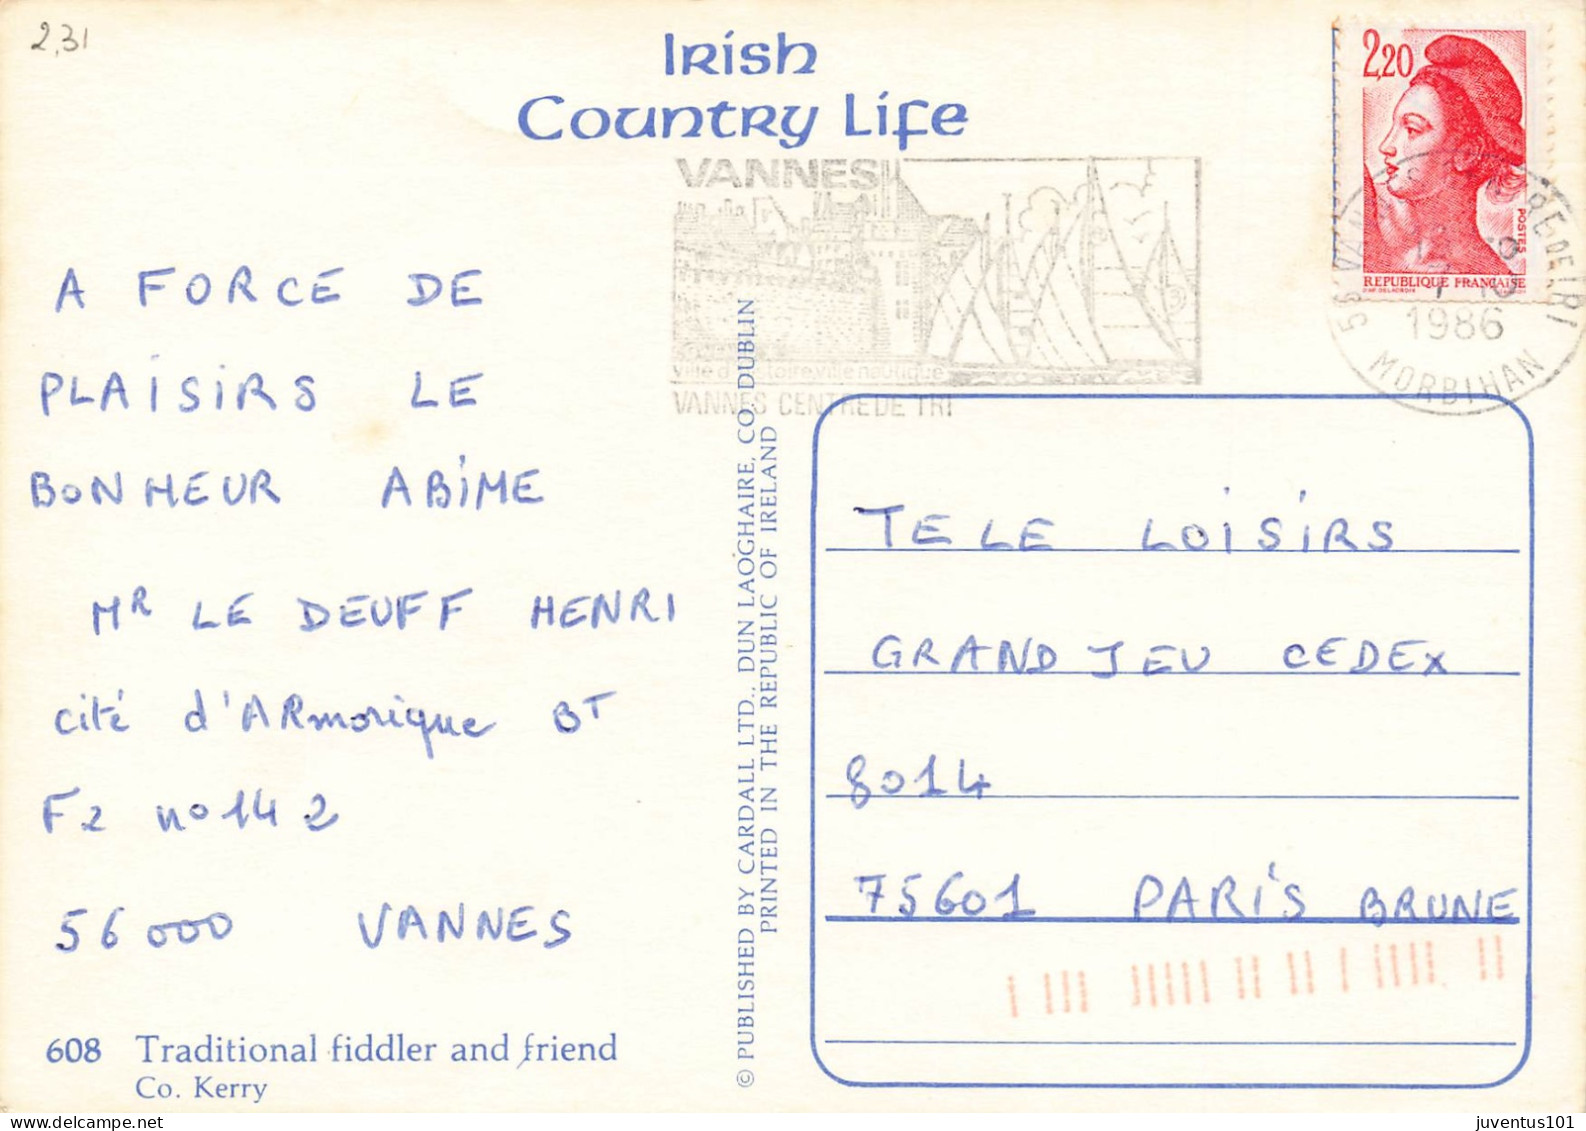 2,31
Irish
Country Life
2,20
POSTES
REPUBLIQUE FRANÇAISE
VANNES
ville d'histoire, ville nautique
VANNES CENTRE DE TRI
1986
MORBIHAN
A FORCE DE
PLAISIRS LE
BONHEUR ABIME
MR LE DEUFF HENRI
cité d'ARmorique BT
F2 n° 142
56000 VANNES
608 Traditional fiddler and friend
Co. Kerry
© PUBLISHED BY CARDALL LTD., DUN LAOGHAIRE, CO. DUBLIN
PRINTED IN THE REPUBLIC OF IRELAND
TELE LOISIRS
GRAND JEU CEDEX
8014
75601 PARIS BRUNE
juventus101